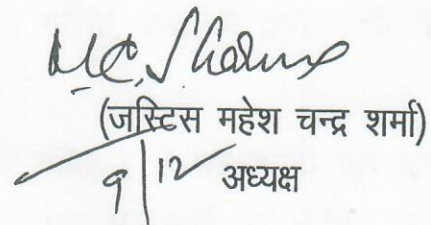 M.C. Sharma
(जस्टिस महेश चन्द्र शर्मा)
9/12 अध्यक्ष